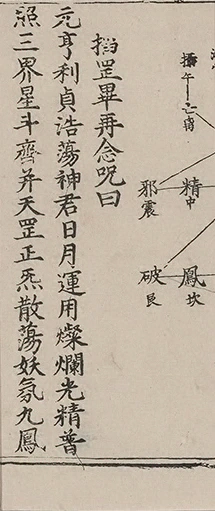 精中
鳳坎
邪震
破艮
掐罡畢再念咒曰
元亨利貞浩蕩神君日月運用燦爛光精普
照三界星斗齊并天罡正炁散蕩妖氛九鳳